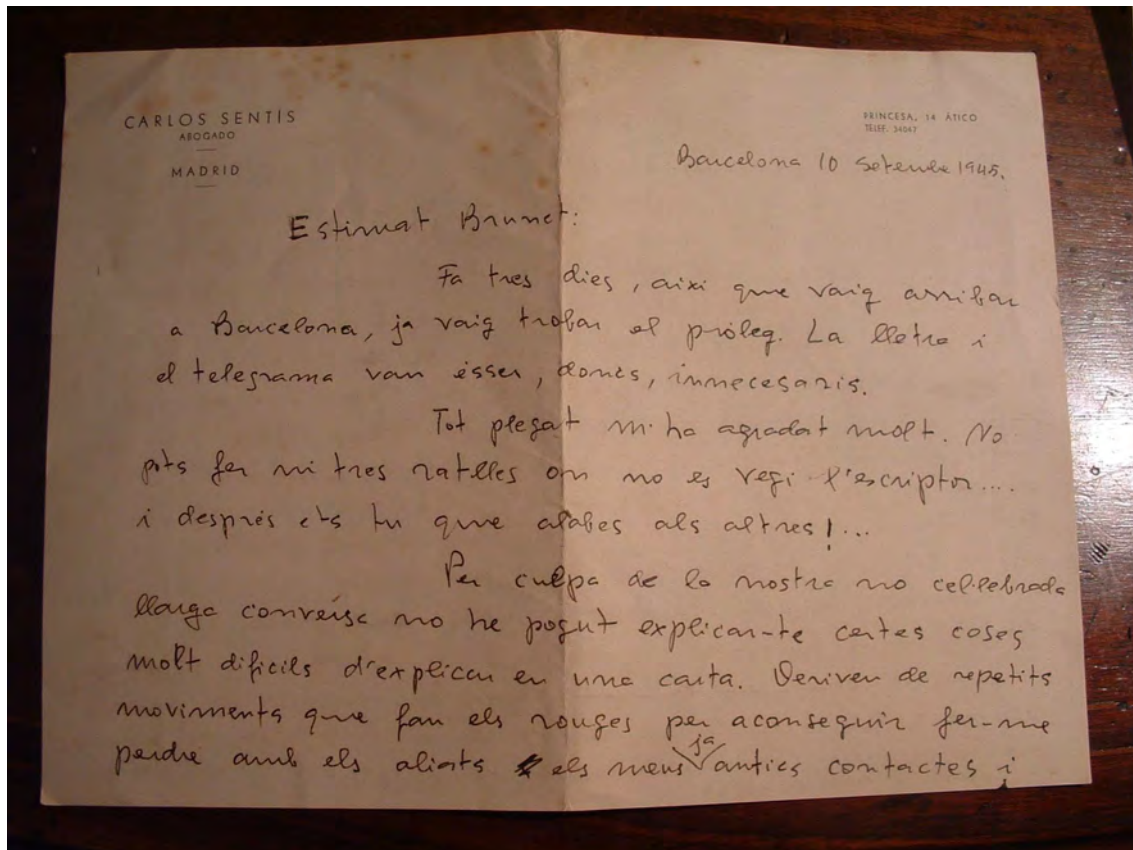 CARLOS SENTÍS
ABOGADO
MADRID
PRINCESA, 14 ÁTICO
TELEF. 34047
Barcelona 10 setembre 1945.
Estimat Brunet:
Fa tres dies, aixi que vaig arribar
a Barcelona, ja vaig trobar el pròleg. La lletra i
el telegrama van ésser, doncs, innecesaris.
Tot plegat m'ha agradat molt. No
pots fer ni tres ratlles on no es vegi l'escriptor....
i després ets tu que alabes als altres!...
Per culpa de la nostra no cel·lebrada
llarga conversa no he pogut explicar-te certes coses
molt dificils d'explicar en una carta. Deriven de repetits
moviments que fan els rouges per aconseguir fer-me
perdre amb els aliats els meus ja antics contactes i